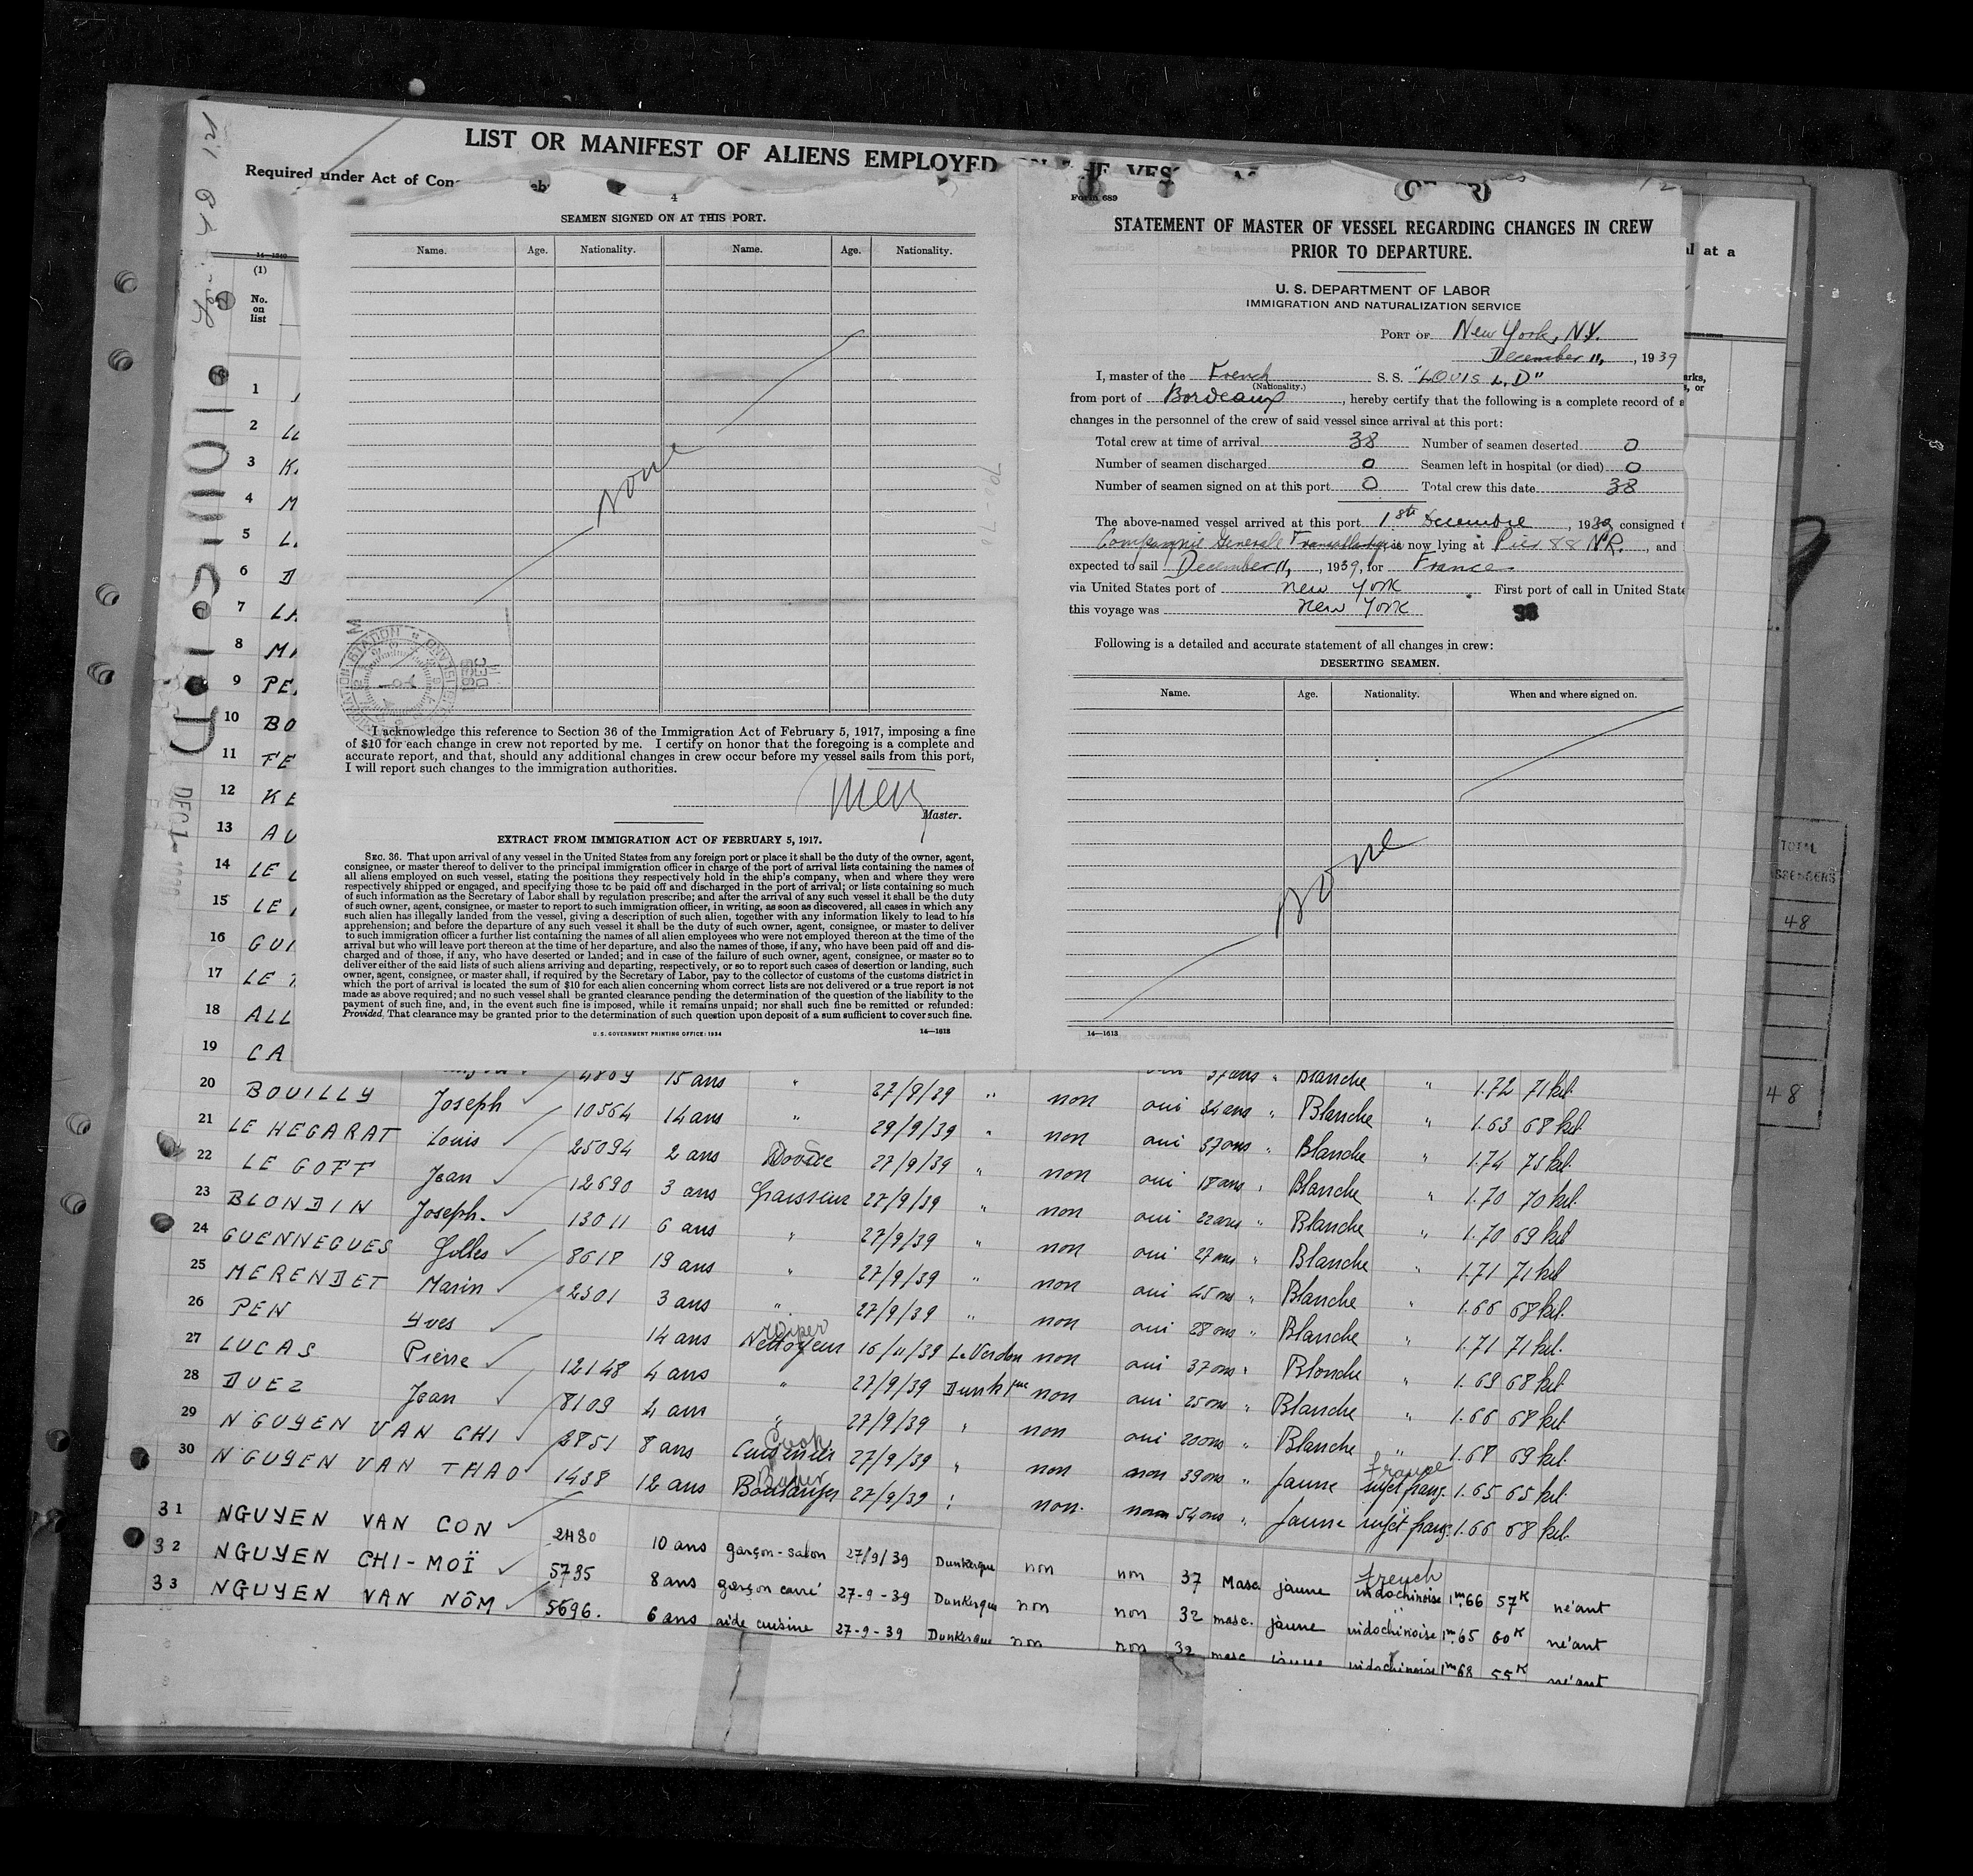 LIST OR MANIFEST OF ALIENS EMPLOYED
Required under Act of
4
SEAMEN SIGNED ON AT THIS PORT.
Name. Age. Nationality. Name. Age. Nationality.
none
I acknowledge this reference to Section 36 of the Immigration Act of February 5, 1917, imposing a fine
of $10 for each change in crew not reported by me. I certify on honor that the foregoing is a complete and
accurate report, and that, should any additional changes in crew occur before my vessel sails from this port,
I will report such changes to the immigration authorities.
Master.
EXTRACT FROM IMMIGRATION ACT OF FEBRUARY 5, 1917.
SEC. 36. That upon arrival of any vessel in the United States from any foreign port or place it shall be the duty of the owner, agent,
consignee, or master thereof to deliver to the principal immigration officer in charge of the port of arrival lists containing the names of
all aliens employed on such vessel, stating the positions they respectively hold in the ship's company, when and where they were
respectively shipped or engaged, and specifying those to be paid off and discharged in the port of arrival; or lists containing so much
of such information as the Secretary of Labor shall by regulation prescribe; and after the arrival of any such vessel it shall be the duty
of such owner, agent, consignee, or master to report to such immigration officer, in writing, as soon as discovered, all cases in which any
such alien has illegally landed from the vessel, giving a description of such alien, together with any information likely to lead to his
apprehension; and before the departure of any such vessel it shall be the duty of such owner, agent, consignee, or master to deliver
to such immigration officer a further list containing the names of all alien employees who were not employed thereon at the time of the
arrival but who will leave port thereon at the time of her departure, and also the names of those, if any, who have been paid off and dis-
charged and of those, if any, who have deserted or landed; and in case of the failure of such owner, agent, consignee, or master so to
deliver either of the said lists of such aliens arriving and departing, respectively, or so to report such cases of desertion or landing, such
owner, agent, consignee, or master shall, if required by the Secretary of Labor, pay to the collector of customs of the customs district in
which the port of arrival is located the sum of $10 for each alien concerning whom correct lists are not delivered or a true report is not
made as above required; and no such vessel shall be granted clearance pending the determination of the question of the liability to the
payment of such fine, and, in the event such fine is imposed, while it remains unpaid; nor shall such fine be remitted or refunded:
Provided, That clearance may be granted prior to the determination of such question upon deposit of a sum sufficient to cover such fine.
U. S. GOVERNMENT PRINTING OFFICE: 1934 14—1613
Form 689
STATEMENT OF MASTER OF VESSEL REGARDING CHANGES IN CREW
PRIOR TO DEPARTURE.
U. S. DEPARTMENT OF LABOR
IMMIGRATION AND NATURALIZATION SERVICE
PORT OF New York, N.Y.
December 11, , 1939
I, master of the French S. S. "LOUIS L.D"
(Nationality.)
from port of Bordeaux , hereby certify that the following is a complete record of
changes in the personnel of the crew of said vessel since arrival at this port:
Total crew at time of arrival 38 Number of seamen deserted 0
Number of seamen discharged 0 Seamen left in hospital (or died) 0
Number of seamen signed on at this port 0 Total crew this date 38
The above-named vessel arrived at this port 1.8th Decembre , 1939 consigned
Compagnie Generale Transatlantique is now lying at Pier 88 N.R. , and
expected to sail December 11, , 1939, for France
via United States port of new york . First port of call in United
this voyage was new york
38
Following is a detailed and accurate statement of all changes in crew:
DESERTING SEAMEN.
Name. Age. Nationality. When and where signed on.
none
14—1613
al at a
TOTAL
48
48
LOUIS L D
(1)
No.
on
list
1
2
3
4
5
6
7
8
9
10 BO
11 FE
12 KE
13 AU
14 LE
15 LE
16 GUI
17 LE
18 ALL
19 CA
4869 15 ans " 27/9/39 " non oui 37 ans " Blanche " 1.72 71 kil.
20 BOUILLY Joseph 10564 14 ans " 29/9/39 " non oui 34 ans " Blanche " 1.63 68 kil.
21 LE HEGARAT Louis 25094 2 ans 27/9/39 " non oui 37 ans " Blanche " 1.74 75 kil.
22 LE GOFF Jean 12690 3 ans Graisseur 27/9/39 " non oui 18 ans " Blanche " 1.70 70 kil.
23 BLONDIN Joseph. 13011 6 ans " 27/9/39 " non oui 22 ans " Blanche " 1.70 69 kil
24 GUENNEGUES Gilles 8617 19 ans " 27/9/39 " non oui 27 ans " Blanche " 1.71 71 kil
25 MERENDET Marin 2301 3 ans " 27/9/39 " non oui 45 ans " Blanche " 1.66 68 kil.
26 PEN Yves 14 ans Wiper Nettoyeur 16/11/39 Le Verdon non oui 28 ans " Blanche " 1.71 71 kil.
27 LUCAS Pierre 12148 4 ans " 27/9/39 Dunkque non oui 37 ans " Blanche " 1.69 68 kil
28 DUEZ Jean 8109 4 ans " 27/9/39 " non oui 25 ans " Blanche " 1.66 68 kil.
29 N'GUYEN VAN CHI 2851 8 ans Cook Cuisinier 27/9/39 " non oui 20 ans " Blanche " 1.68 69 kil.
30 N'GUYEN VAN THAO 1438 12 ans Baker Boulanger 27/9/39 " non. non 39 ans " Jaune sujet franç. 1.65 65 kil.
non 54 ans " Jaune sujet franç. 1.66 68 kil.
31 NGUYEN VAN CON 2480 10 ans garçon-salon 27/9/39 Dunkerque non non 37 Masc. jaune french indochinoise 1m.66 57K né'ant
32 NGUYEN CHI-MOÏ 5735 8 ans garçon carré 27-9-39 Dunkerque non non 32 masc. jaune indochinoise 1m.65 60K né'ant
33 NGUYEN VAN NÔM 5696. 6 ans aide cuisine 27-9-39 Dunkerque non non 32 masc jaune indochinoise 1m68 55K né'ant